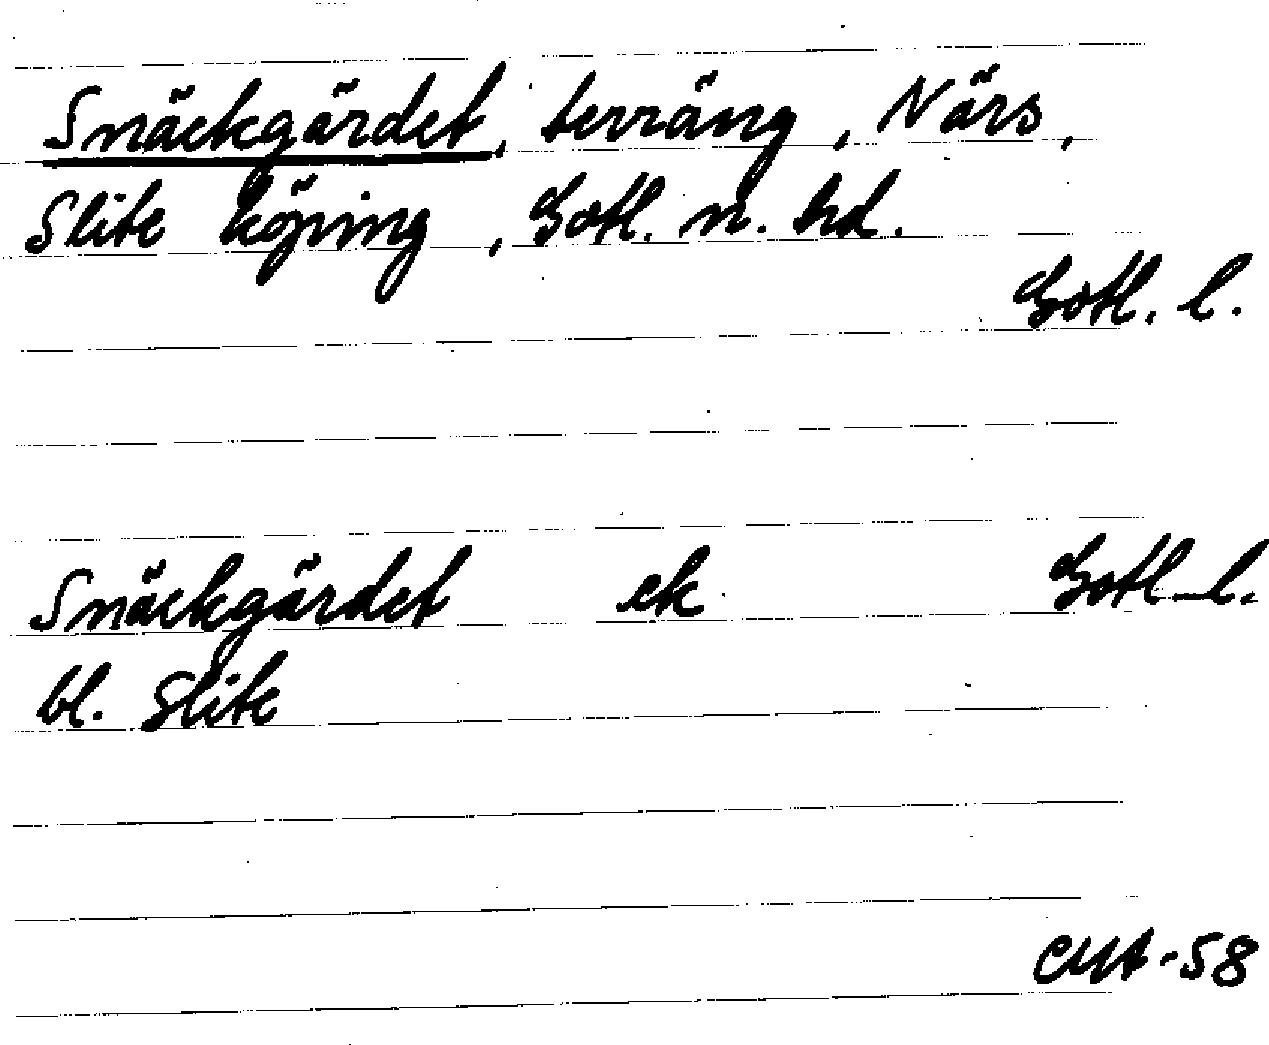 Snäckgärdet, terräng, Närs,
Slite köping, Gotl. n. hd.
Gotl. l.
Snäckgärdet ek Gotl. l.
bl. Slite
CMA-58